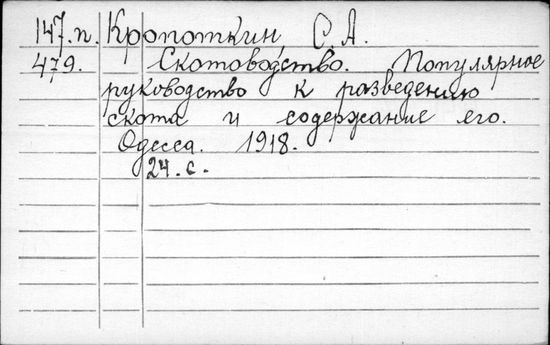 147.п. Кропоткин С.А.
479. Скотоводство. Популярное
руководство к разведению
скота и содержание его.
Одесса. 1918.
24.с.